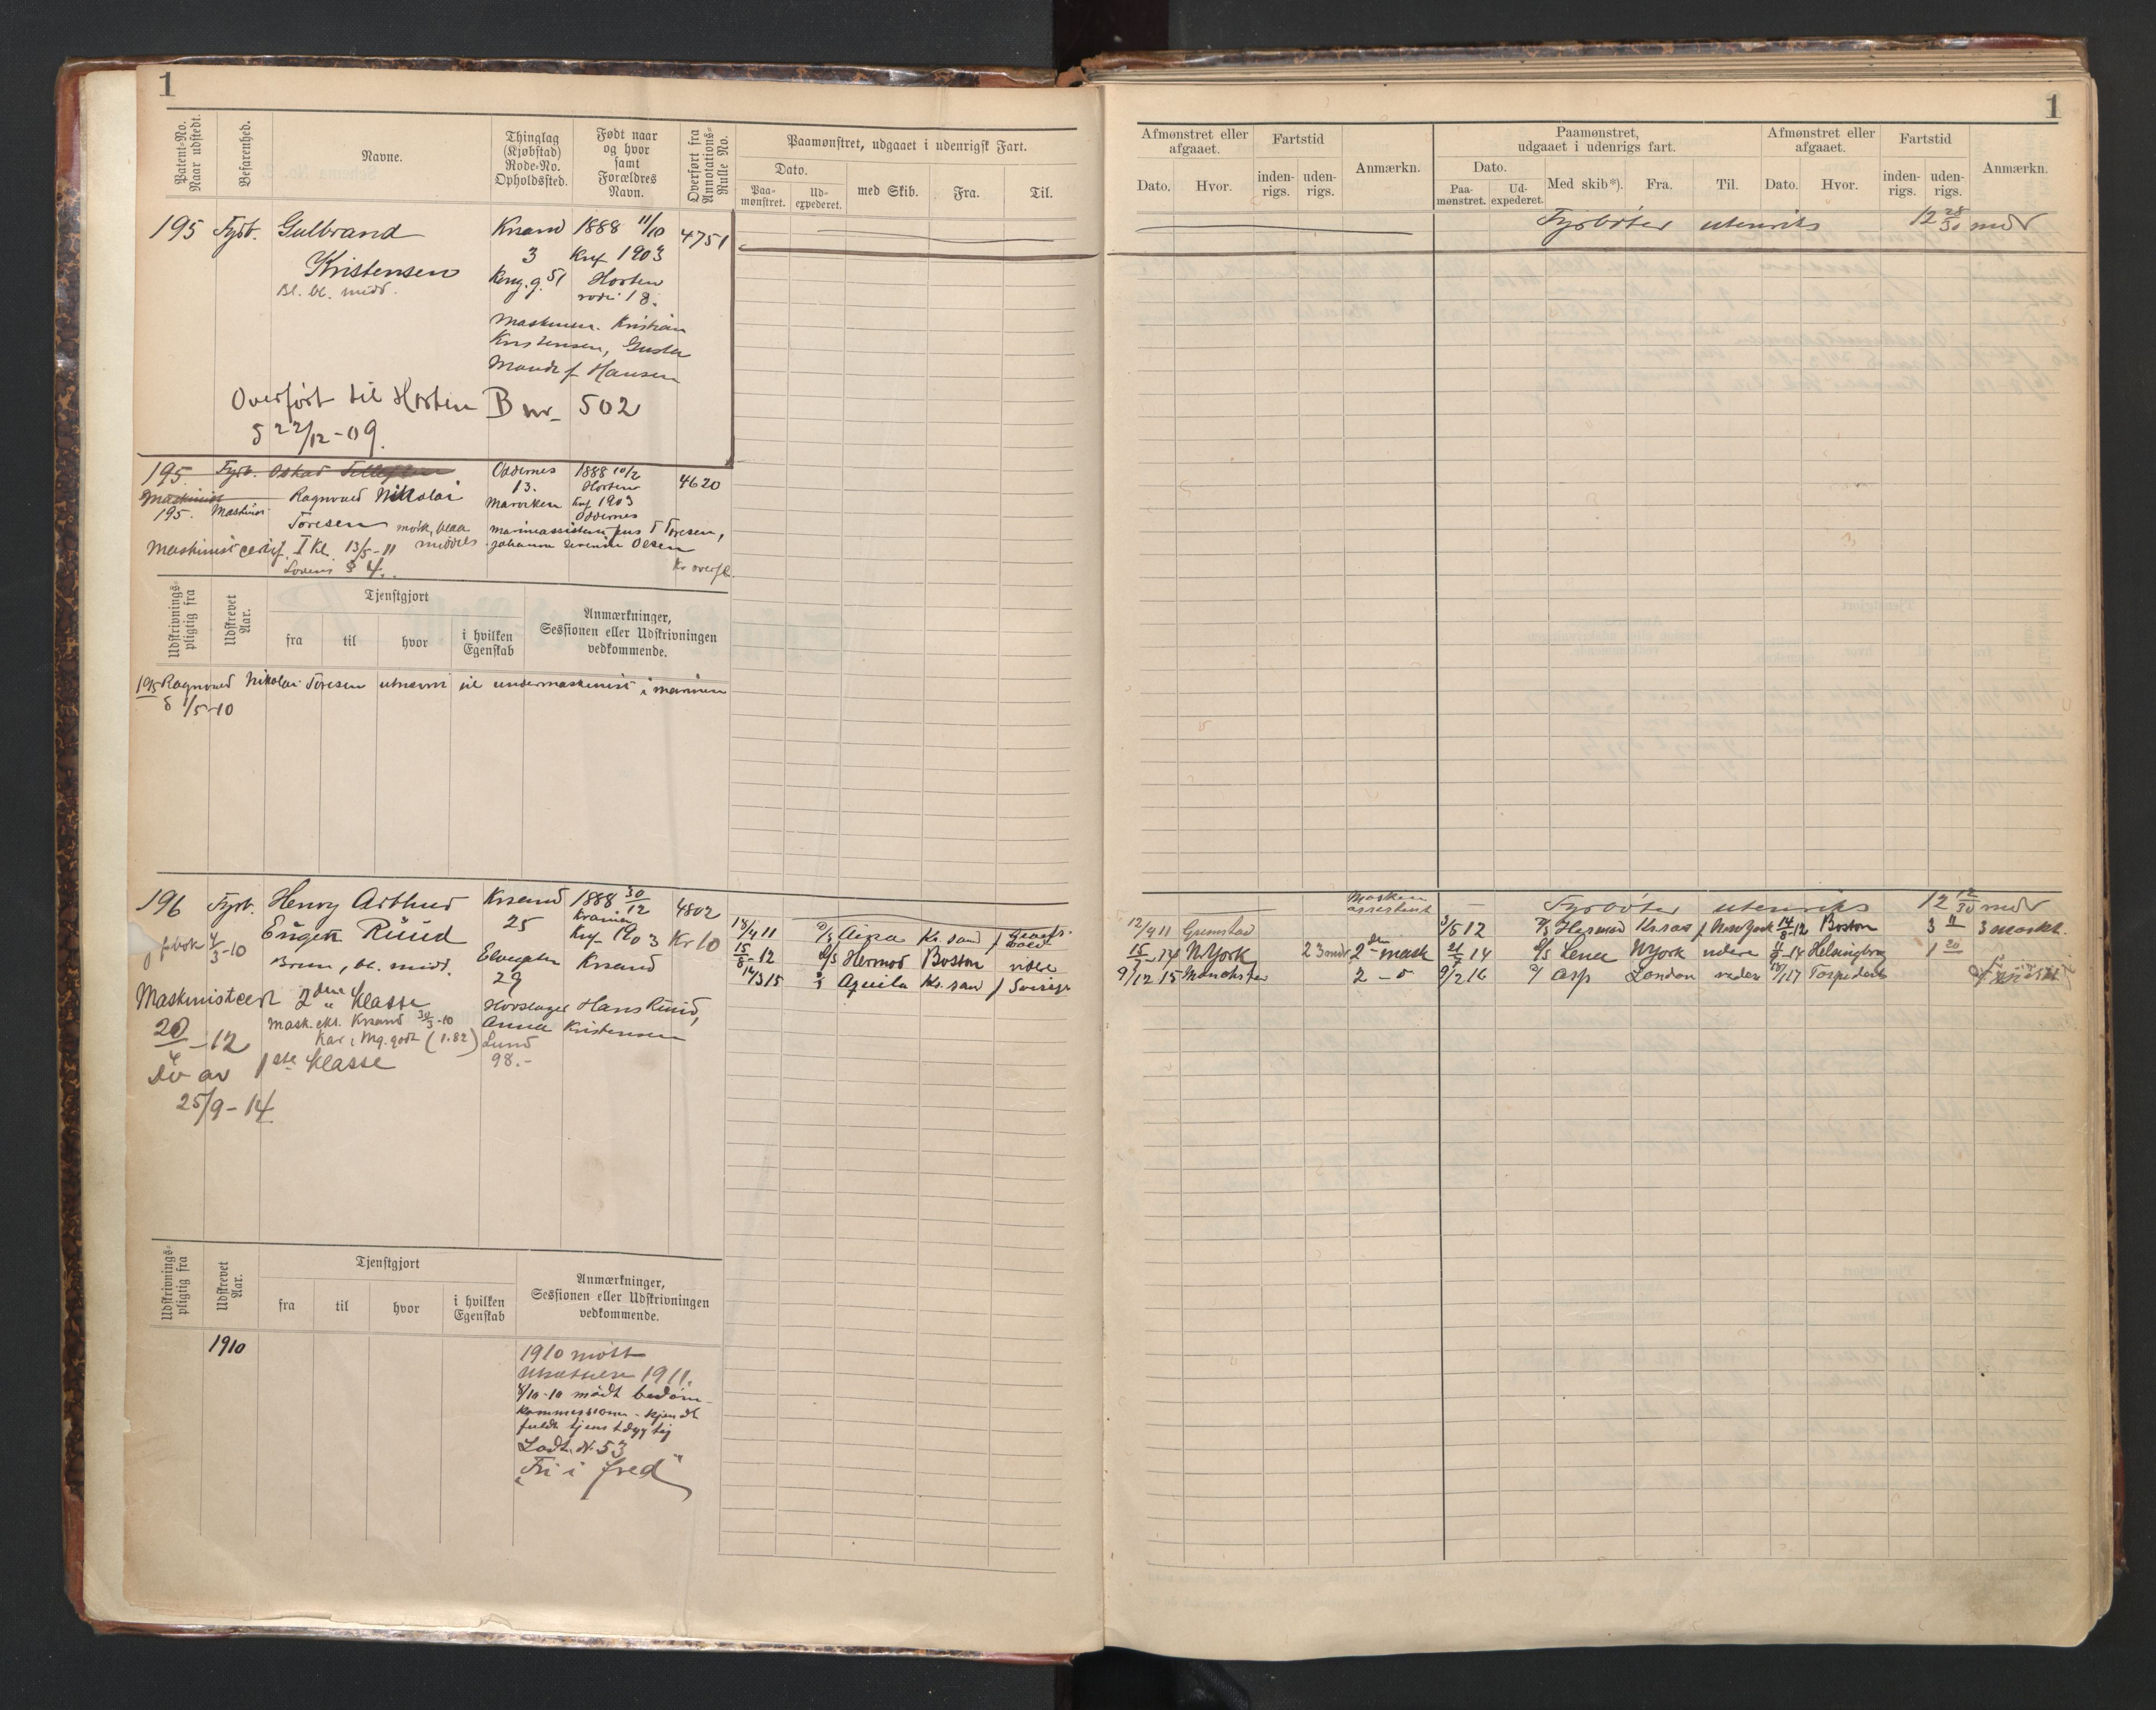 1
Patent-No. Naar udstedt.
Befarenhed.
Navne.
Thinglag (Kjøbstad) Rode-No. Opholdssted.
Født naar og hvor samt Forældres Navn.
Overført fra Annotations-Rulle No.
Paamønstret, udgaaet i udenrigsk Fart.
Dato.
Paamønstret.
Udexpederet.
med Skib.
Fra.
Til.
195 Fyrb. Gulbrand Krsand 1888 11/10 4751
Kristensen 3 Knf 1903
Bl. bl. midd. Kong. g. 51 Horten
rode 18.
Maskinm. Kristian
Kristensen, Gusta
Hansen
Overført til Horten B nr 502
22/12-09.
195. Fyrb. Oskar Oddernes 1888 10/2 4620
Maskinist Ragnvald Nikolai 13. Horten
195. Maskinist Knf 1903
Toresen mørk, blaa Oddernes
middels marineassistent Jens T Toresen,
Maskinist certif. I Kl. 13/5-11 Johanna Severine Olsen
Lovens § 4.
Udskrivningspligtig fra
Udskrevet Aar.
Tjenstgjort
fra
til
hvor
i hvilken Egenskab
Anmærkninger, Sessionen eller Udskrivningen vedkommende.
195 Ragnvald Nikolai Toresen utnevnt til undermaskinist i marinen
1/5-10
196 Fyrb. Henry Arthur Krsand 1888 30/12 4802
Eugen Ruud 25 Knf 1903 Kr 10
4/3-10
Brun, bl. midd. Krsand
29
Maskinistcert 2den Klasse Hovslager Hans Ruud,
Mask. eks. Krsand 30/3-10 Anna Kristensen
Kar. Mg. godt (1.82) Lund
20/4-12 98.-
Do av 1ste Klasse
25/9-14
18/4 11 Kr. sand
15/8-12 D/S Hermod Boston videre
14/3 15 Aquila Kr. sand / Sverige
Udskrivningspligtig fra
Udskrevet Aar.
Tjenstgjort
fra
til
hvor
i hvilken Egenskab
Anmærkninger, Sessionen eller Udskrivningen vedkommende.
1910
1910 møtt
Utsættelse 1911.
4/10-10 mødt bedøm-
kommissionen - kjendt
fuldt tjenstdygtig
Lodt. N. 53
"Fri i fred"
1
Afmønstret eller afgaaet.
Dato.
Hvor.
Fartstid
indenrigs.
udenrigs.
Anmærkn.
Paamønstret, udgaaet i udenrigs fart.
Dato.
Paamønstret.
Udexpederet.
Med skib*).
Fra.
Til.
Afmønstret eller afgaaet.
Dato.
Hvor.
Fartstid
indenrigs.
udenrigs.
Anmærkn.
Fyrbøter utenriks 12 28/30 mdr
Maskin assistent — Fyrbøter utenriks 12 12/30 mdr
12/4 11 Grimstad 3/5 12 Hermod Kr.sas / New York 14/8-12 Boston 3 11 3 maskt.
15/7-14 N York 23 mdr 2den mask 21/7 14 D/S Lena N York videre 11/8-14 Helsingborg 1 20
9/12 15 Manchster 2 - o 9/2 16 Asp London videre Torpedert